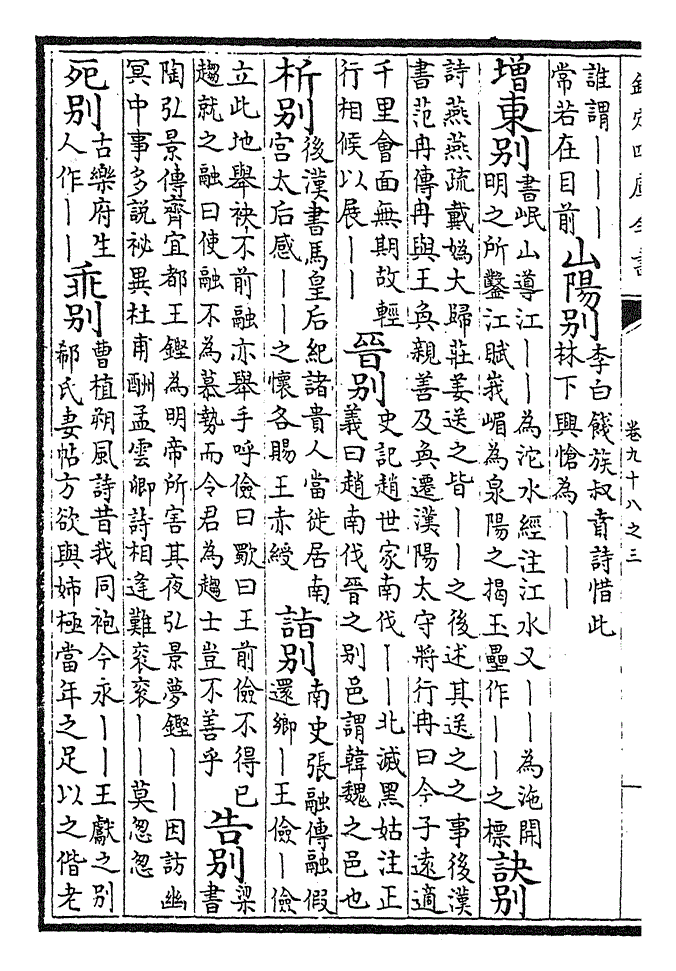 欽定四庫全書
卷九十八之三
誰謂｜｜｜
常若在目前
山陽别
李白餞族叔賁詩惜此
林下興愴為｜｜｜
增東别
書岷山導江｜｜為沱水經注江水又｜｜為沲開
明之所鑿江賦峩嵋為泉陽之揭玉壘作｜｜之標
訣别
詩燕燕疏戴媯大歸莊姜送之皆｜｜之後述其送之之事後漢
書范冉傳冉與王奐親善及奐遷漢陽太守將行冉曰今子遠適
千里會面無期故輕
行相候以展｜｜
晉别
史記趙世家南伐｜｜北滅黑姑注正
義曰趙南伐晉之别邑謂韓魏之邑也
析别
後漢書馬皇后紀諸貴人當徙居南
宫太后感｜｜之懷各賜王赤綬
詣别
南史張融傳融假
還鄉｜王儉｜儉
立此地舉袂不前融亦舉手呼儉曰歜曰王前儉不得已
趨就之融曰使融不為慕勢而令君為趨士豈不善乎
告别
梁
書
陶弘景傳齊宜都王鏗為明帝所害其夜弘景夢鏗｜｜因訪幽
冥中事多說祕異杜甫酬孟雲卿詩相逢難衮衮｜｜莫怱怱
死别
古樂府生
人作｜｜
乖别
曹植朔風詩昔我同袍今永｜｜王獻之别
郗氏妻帖方欲與姊極當年之足以之偕老